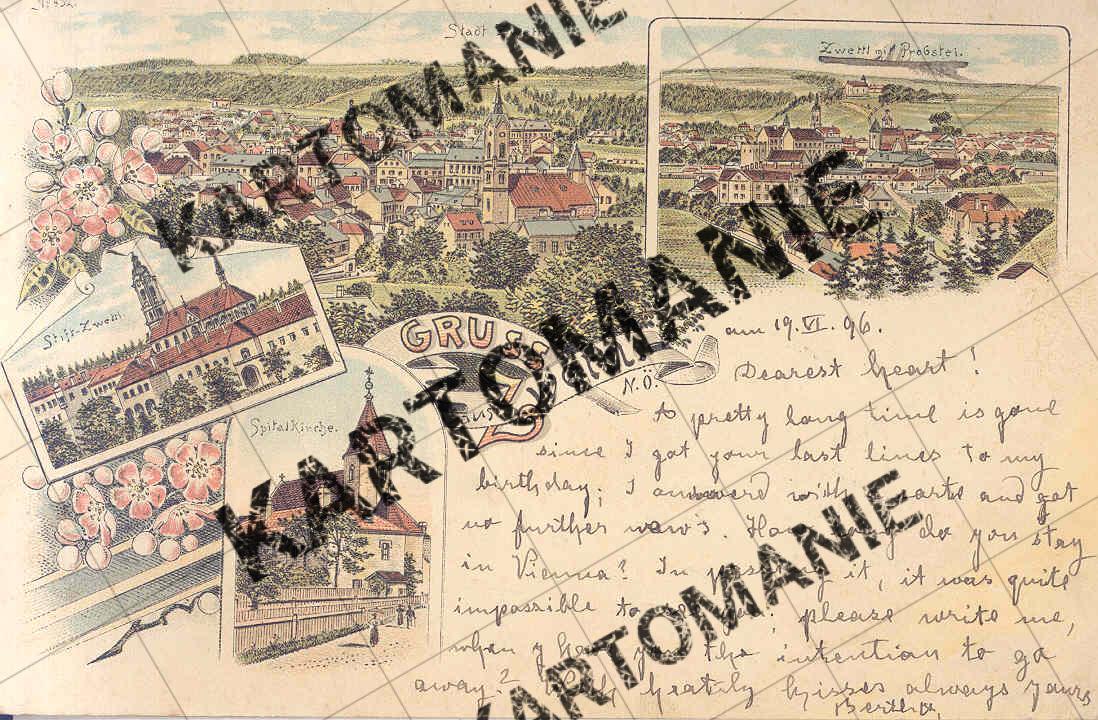 No 852.
Stadt
Zwettl mit Probstei.
Stift-Zwettl.
Spitalkirche.
GRUSS
aus
N.Ö.
am 19. VI. 96.
Dearest heart!
A pretty long time is gone
since I got your last lines to my
birthday; I answered with and got
no further new's. do you stay
in Vienna? In it, it was quite
impossible to please write me,
when you the intention to go
away? kisses always yours
Bertha
KARTOMANIE
KARTOMANIE
KARTOMANIE
KARTOMANIE